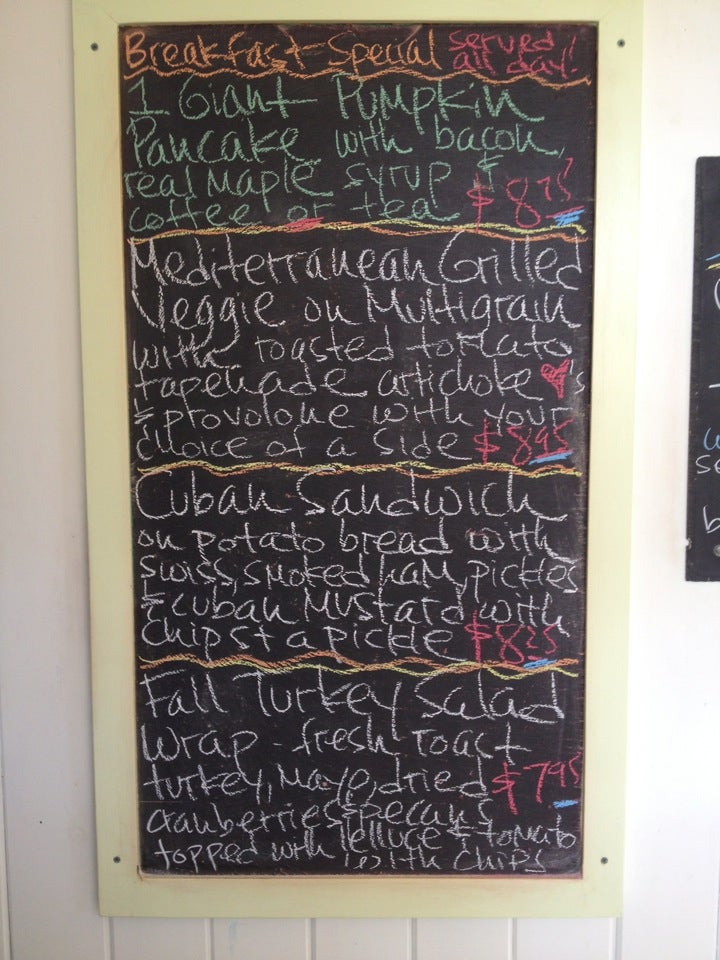 Breakfast Special served
all day!
1 Giant Pumpkin
Pancake with bacon,
real maple syrup &
coffee or tea $8.75
Mediterranean Grilled
Veggie on Multigrain
with roasted tomato
tapenade artichoke ♥'s
& provolone with your
choice of a side $8.95
Cuban Sandwich
on potato bread with
swiss, smoked ham, pickles
& cuban mustard with
chips & a pickle $8.25
Fall Turkey Salad
Wrap - fresh roast
turkey, mayo, dried $7.95
cranberries & pecans
topped with lettuce & tomato
with chips